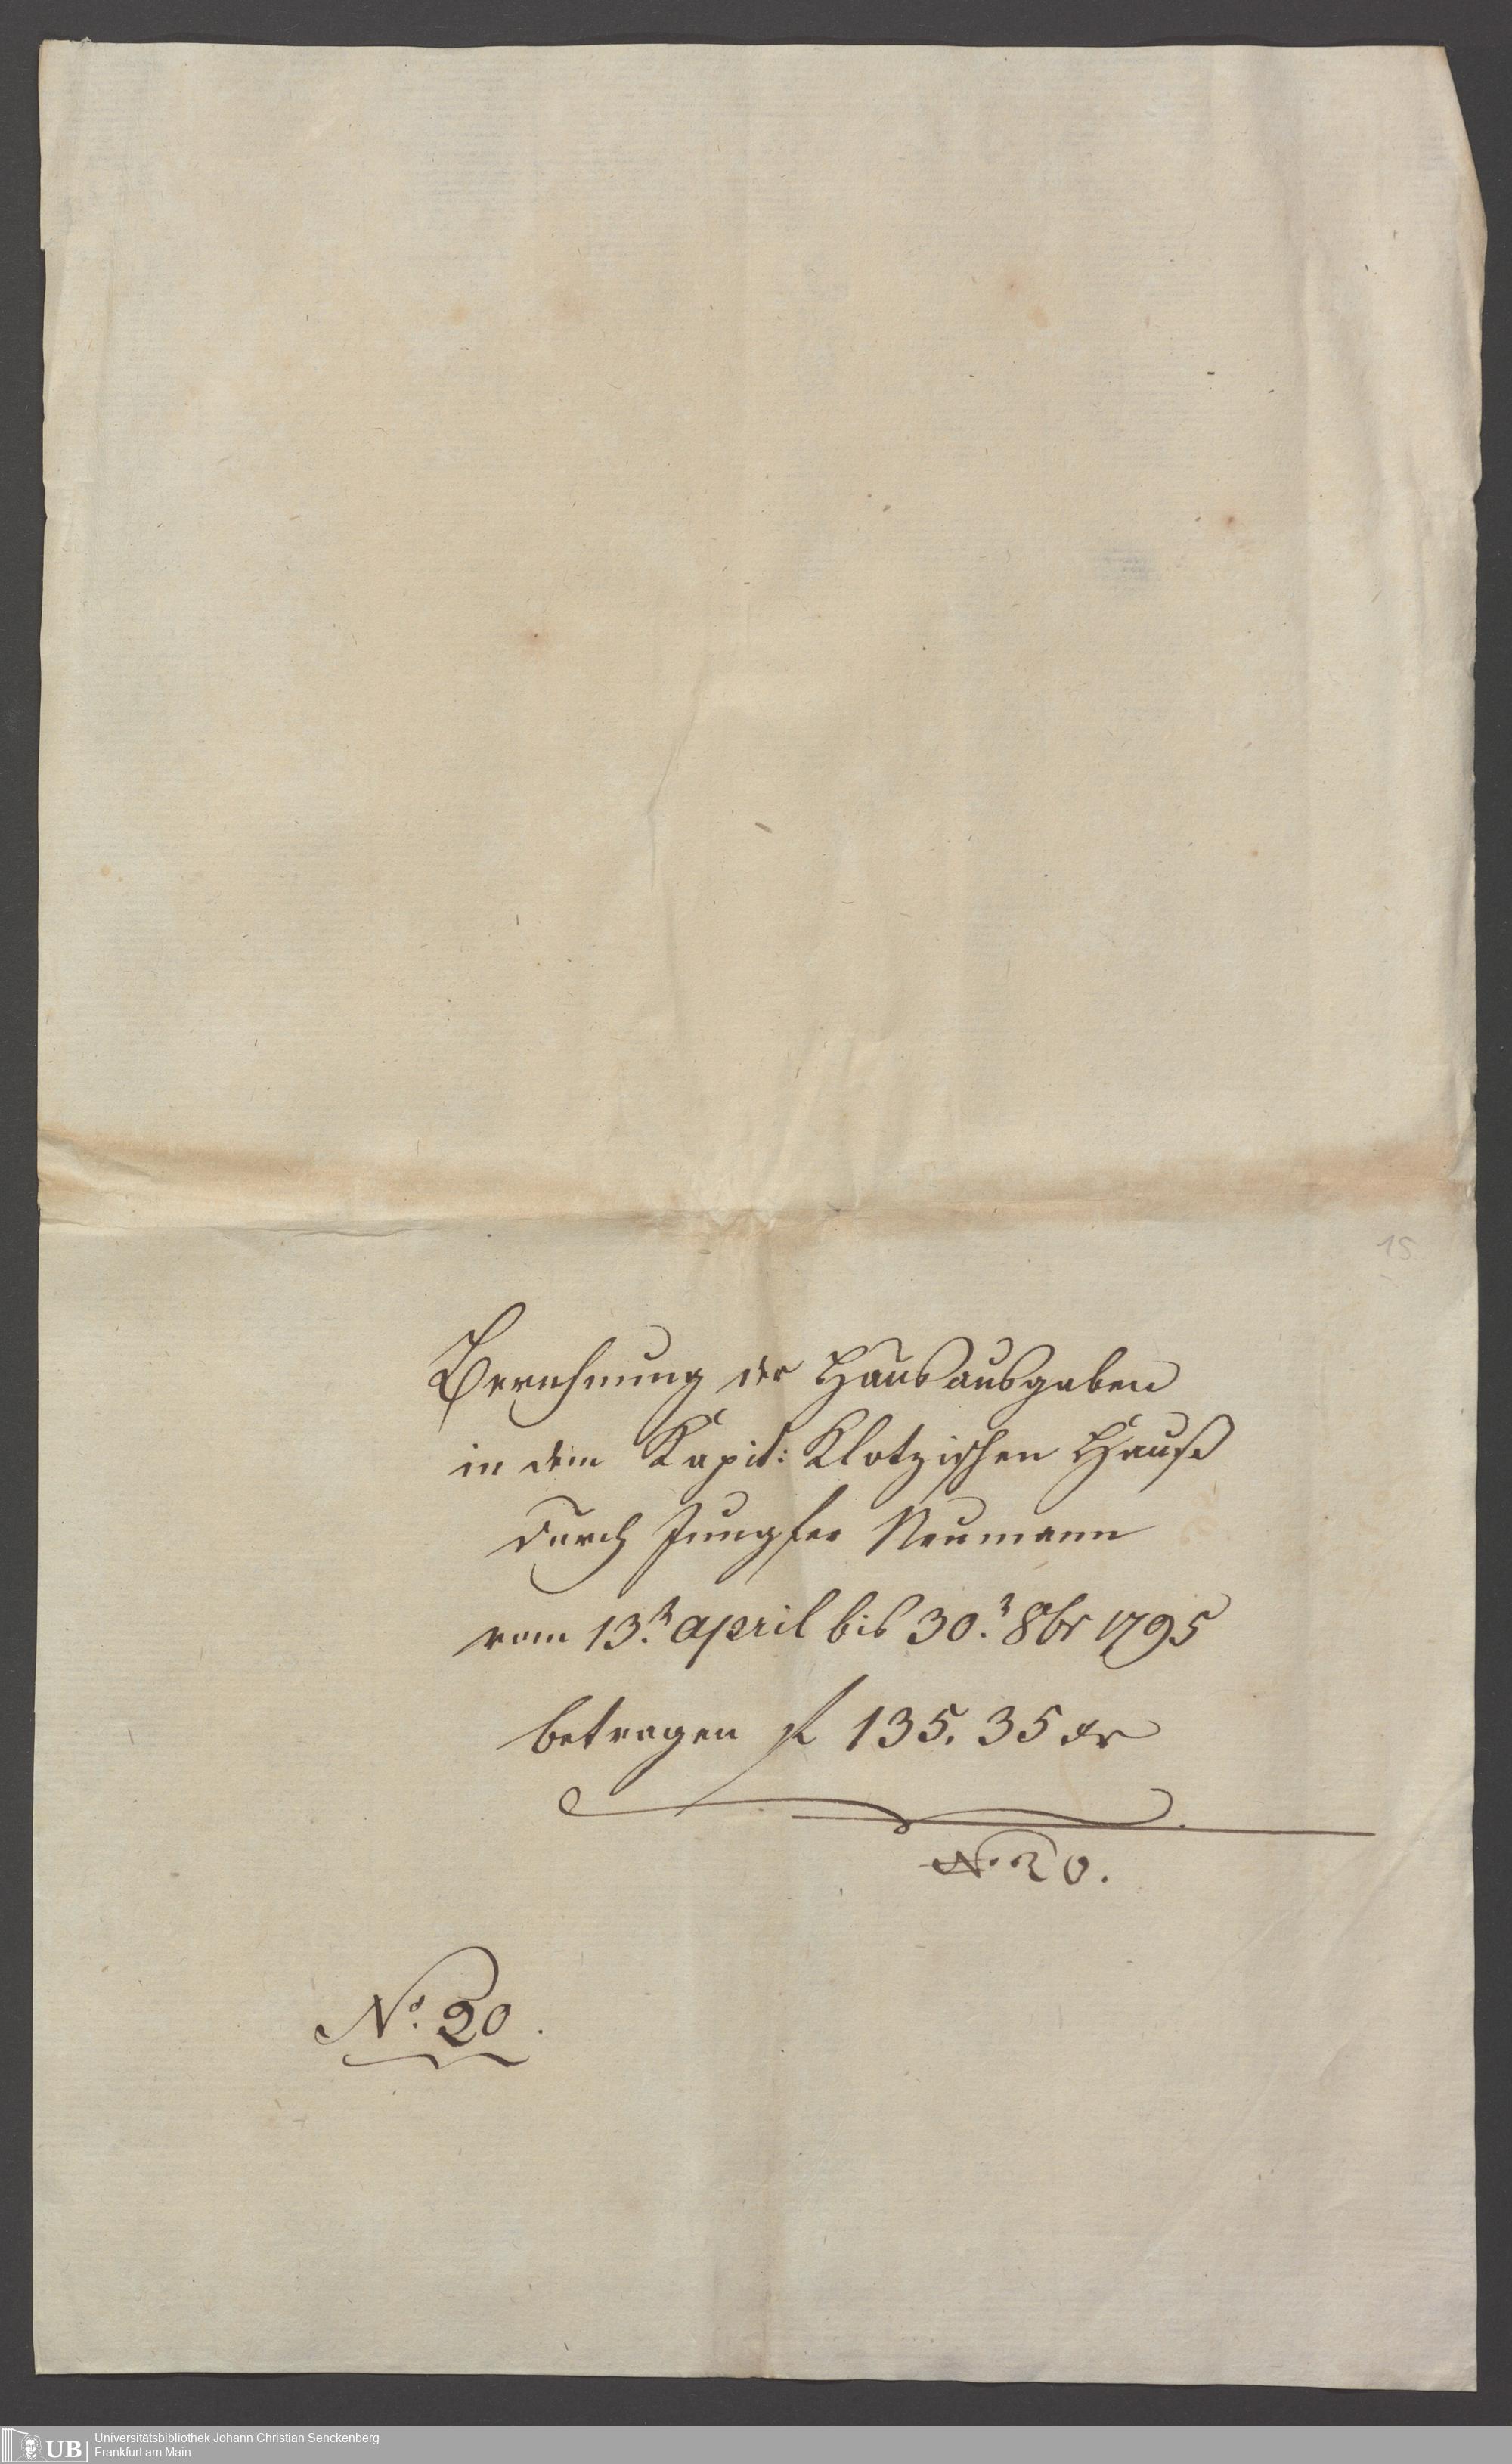 15
Berechnung der Hausausgaben
in dem Kapit: Klotzischen Hauß
durch Jungfer Neumann
vom 13.n april bis 30.n 8br 1795
betragen f 135. 35 xr
No 20.
No. 20.
UB
Universitätsbibliothek Johann Christian Senckenberg
Frankfurt am Main